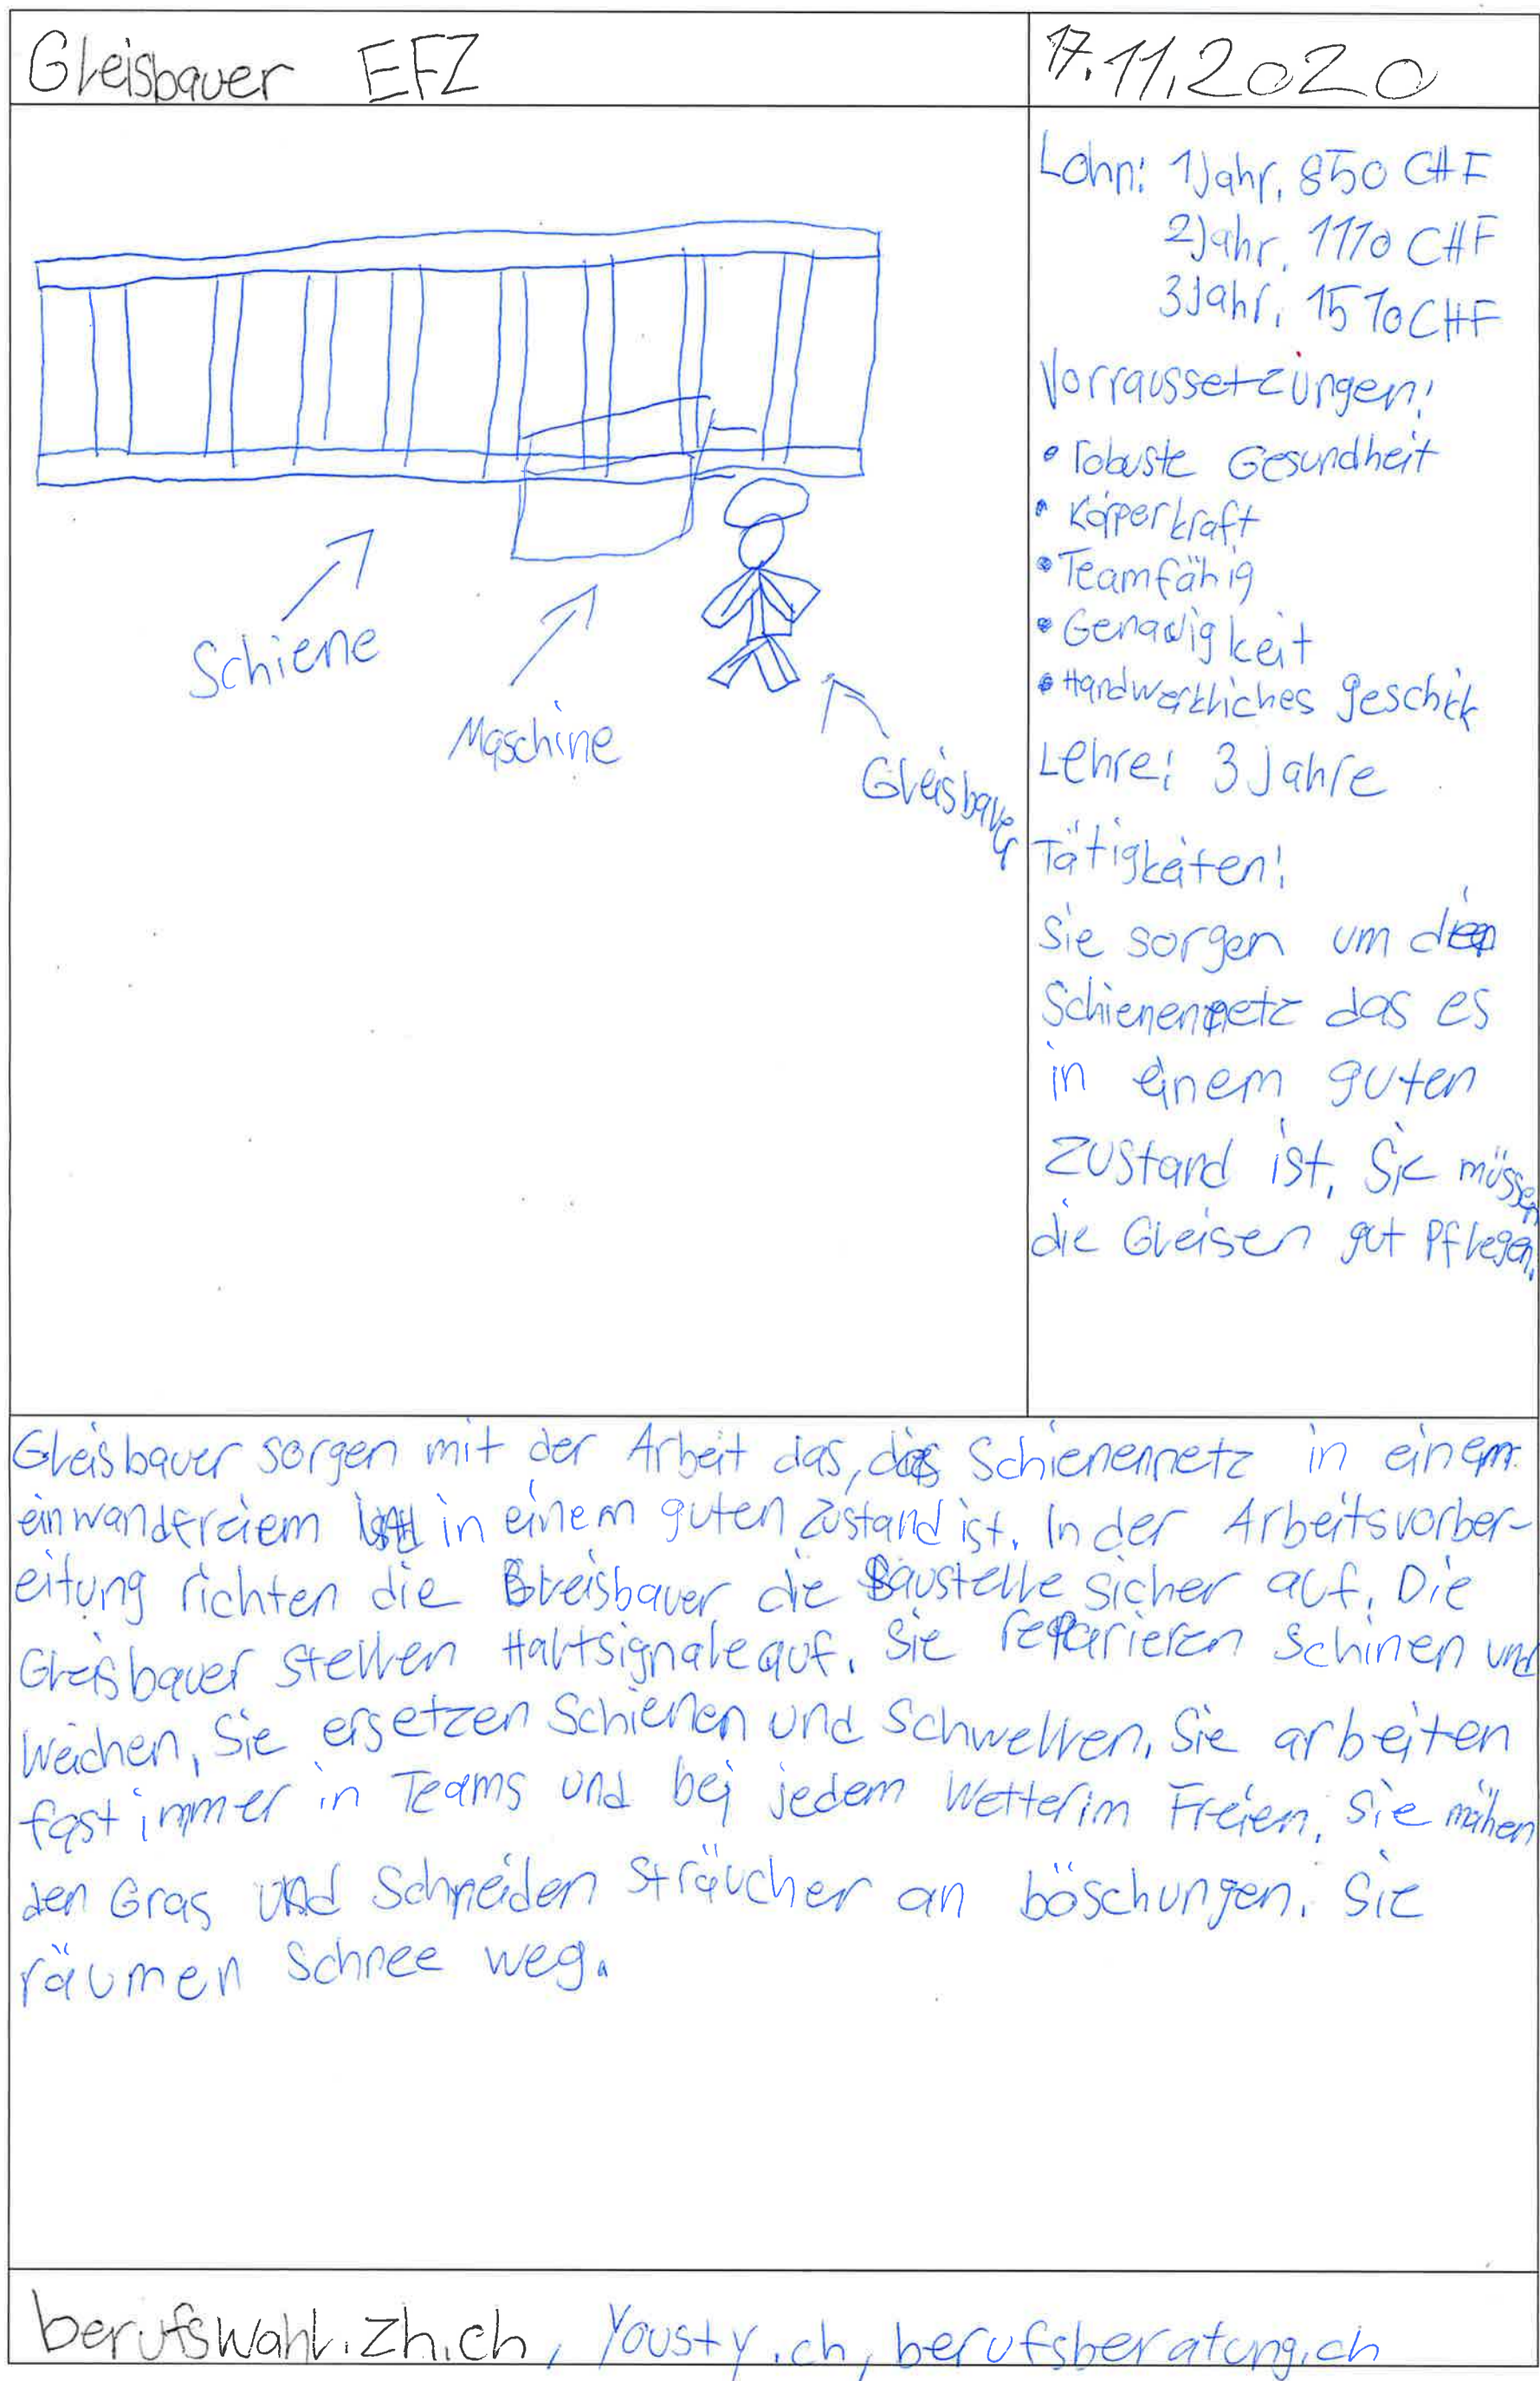 Gleisbauer EFZ
17.11.2020
Lohn: 1Jahr. 850 CHF
2Jahr. 1110 CHF
3Jahr. 1510 CHF
Vorraussetzungen:
• robuste Gesundheit
• Körperkraft
• Teamfähig
• Genauigkeit
• Handwerkliches geschick
Lehre: 3 Jahre
Tätigkeiten:
Sie sorgen um
Schienennetz das es
in einem guten
Zustand ist. Sie müssen
die Gleisen gut Pflegen.
Schiene
Maschine
Gleisbauer
Gleisbauer sorgen mit der Arbeit das, das Schienennetz in einem
einwandfreiem in einem guten Zustand ist. In der Arbeitsvorber-
eitung richten die Gleisbauer die Baustelle sicher auf. Die
Gleisbauer stellen Haltsignale auf. Sie reparieren Schinen und
Weichen, Sie ersetzen Schienen und Schwellen. Sie arbeiten
fast immer in Teams und bei jedem Wetter im Freien. Sie mähen
den Gras und Schneiden Sträucher an böschungen. Sie
räumen Schnee weg.
berufswahl.zh.ch, Yousty.ch, berufsberatung.ch